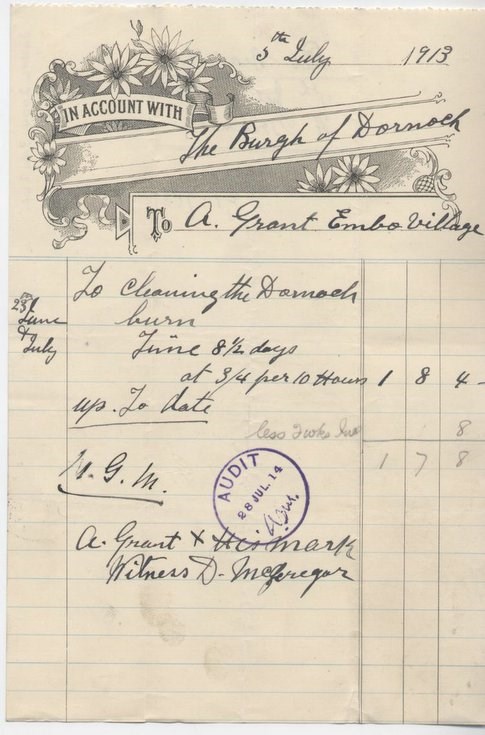 5th July 1913
IN ACCOUNT WITH
The Burgh of Dornoch
To A. Grant Embo Village
To Cleaning the Dornoch
burn
June 8½ days
at 3/4 per 10 Hours 1 8 4 -
up. To date
June
July
less 2 wks Ins 8
1 7 8
G. M.
AUDIT
28 JUL. 14
A. Grant X His mark
Witness D. McGregor